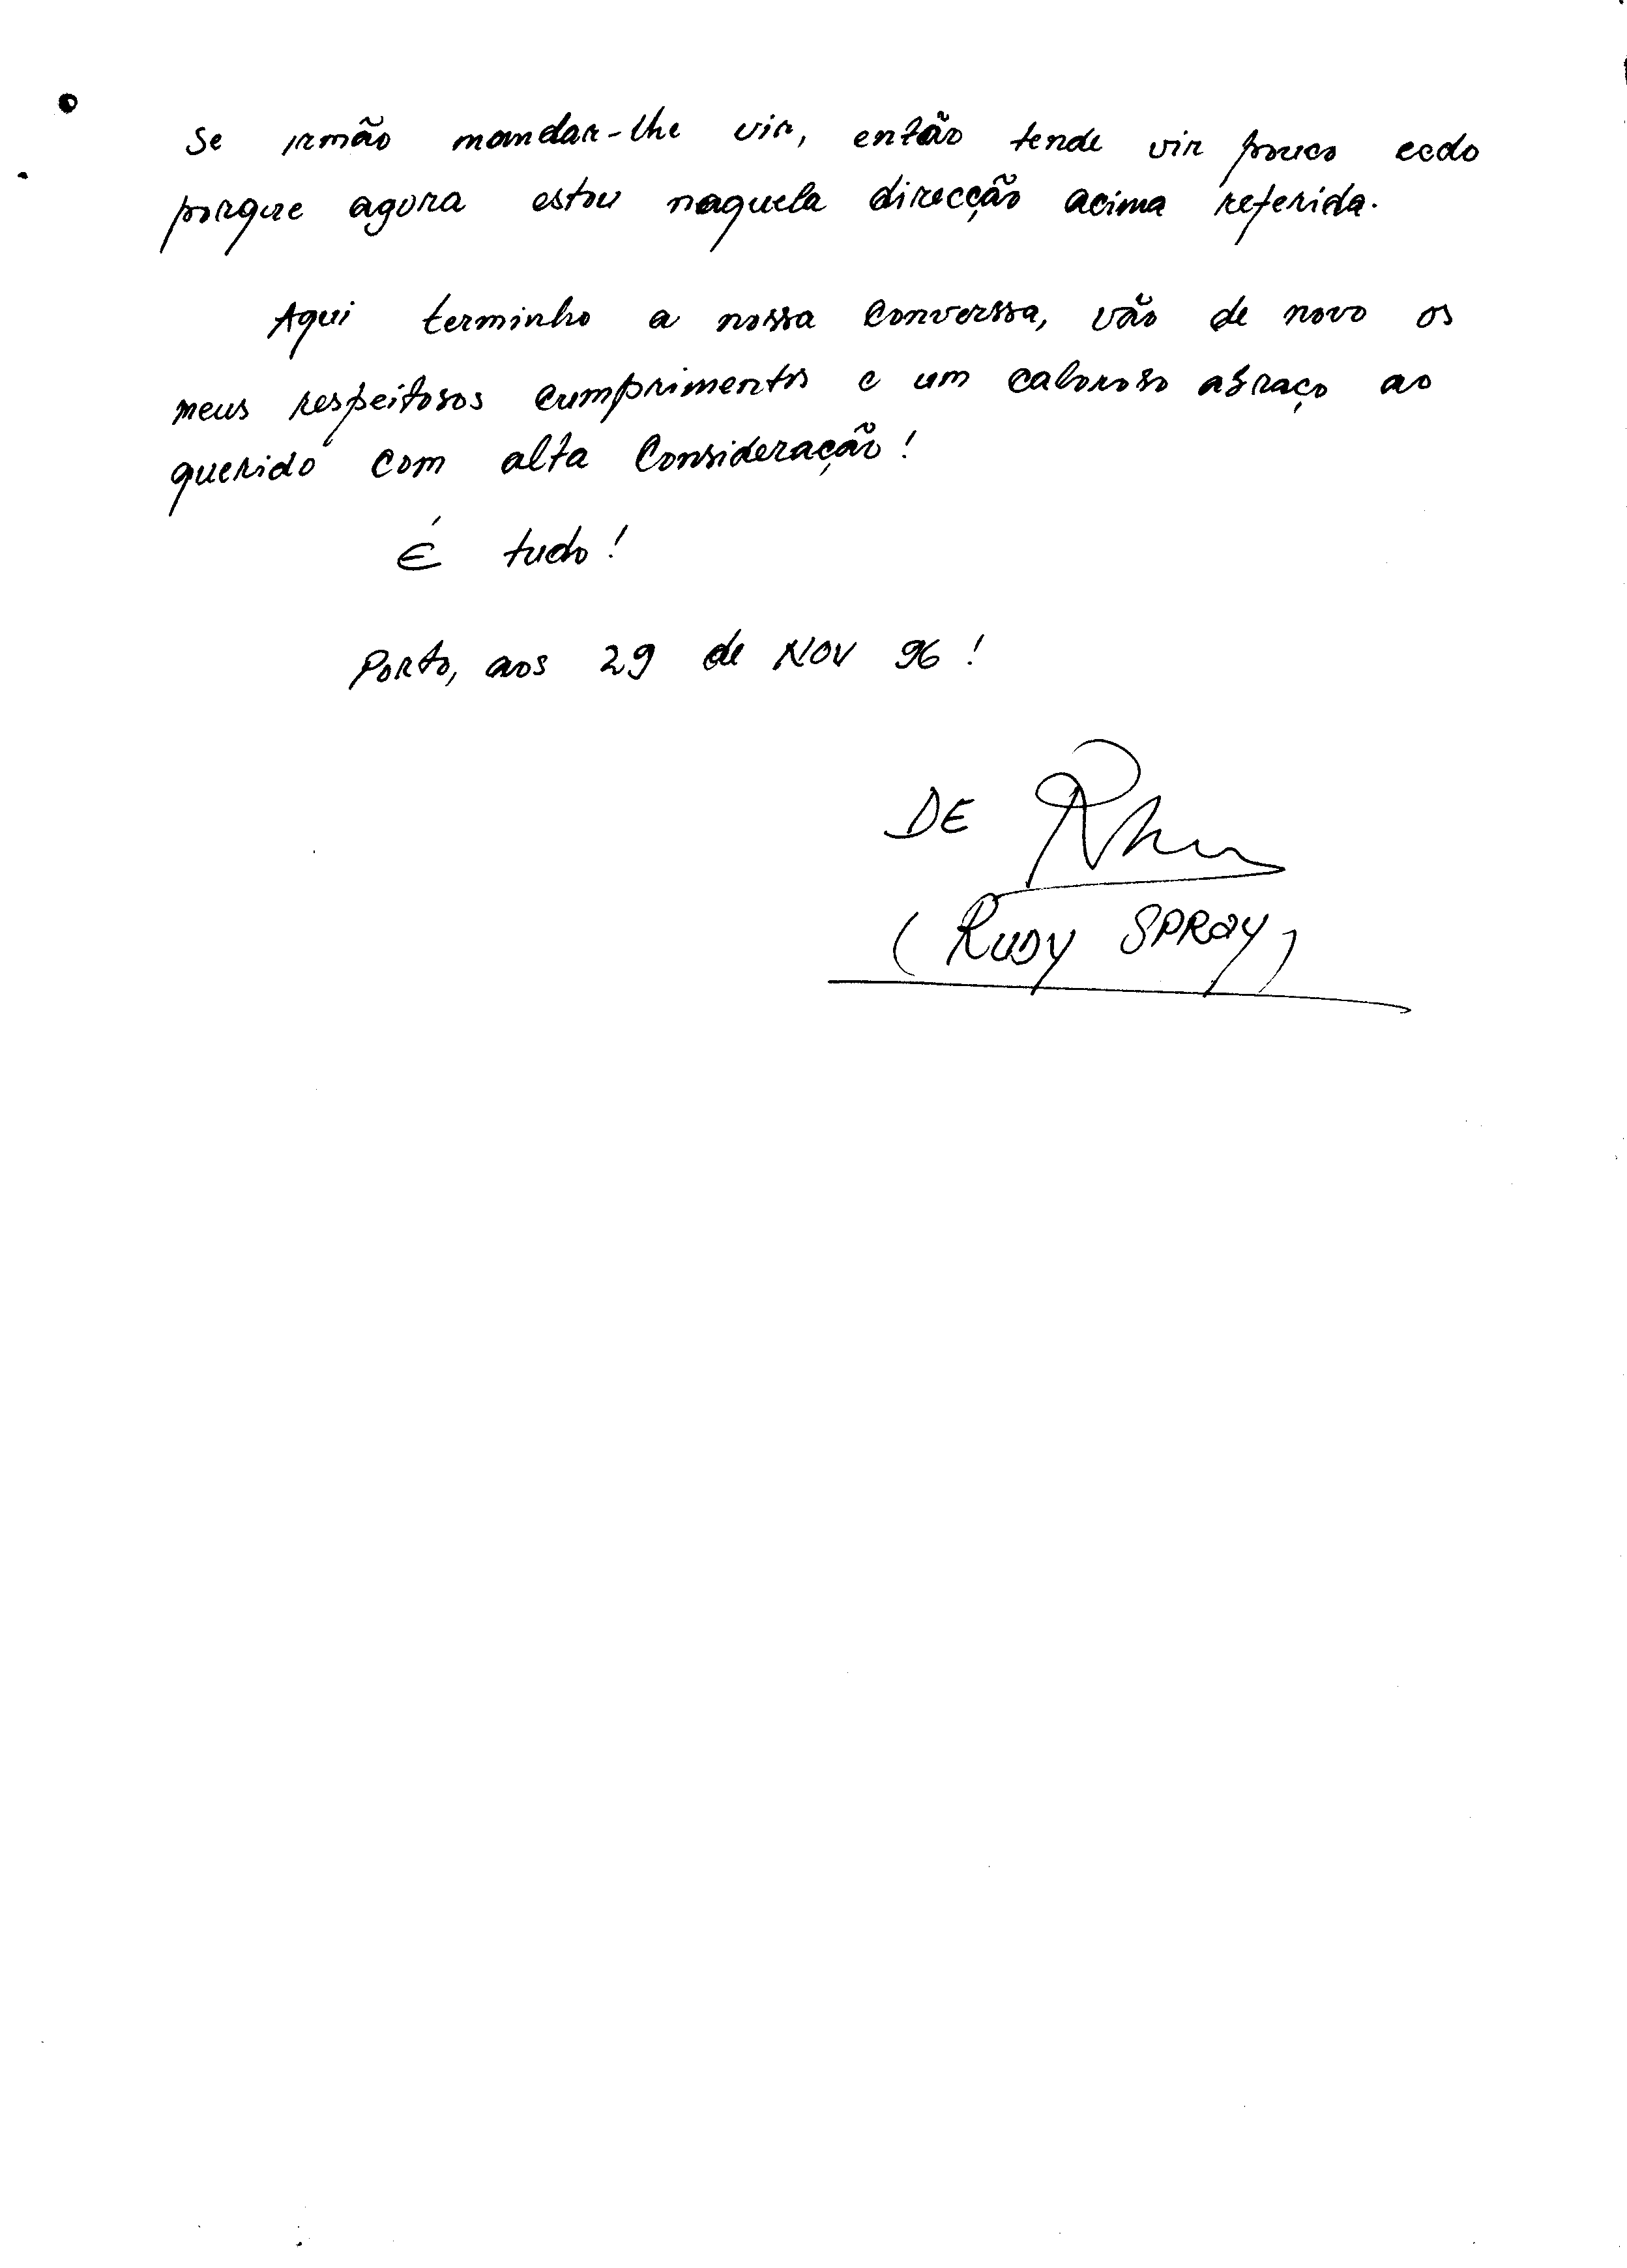 Se irmão mandar-lhe vir, então tende vir pouco cedo
porque agora estou naquela direcção acima referida.
Aqui terminho a nossa converssa, vão de novo os
meus respeitosos cumprimentos e um caloroso abraço ao
querido com alta consideração!
É tudo!
Porto, aos 29 de NOV 96!
DE
(RUDY SPRAY)